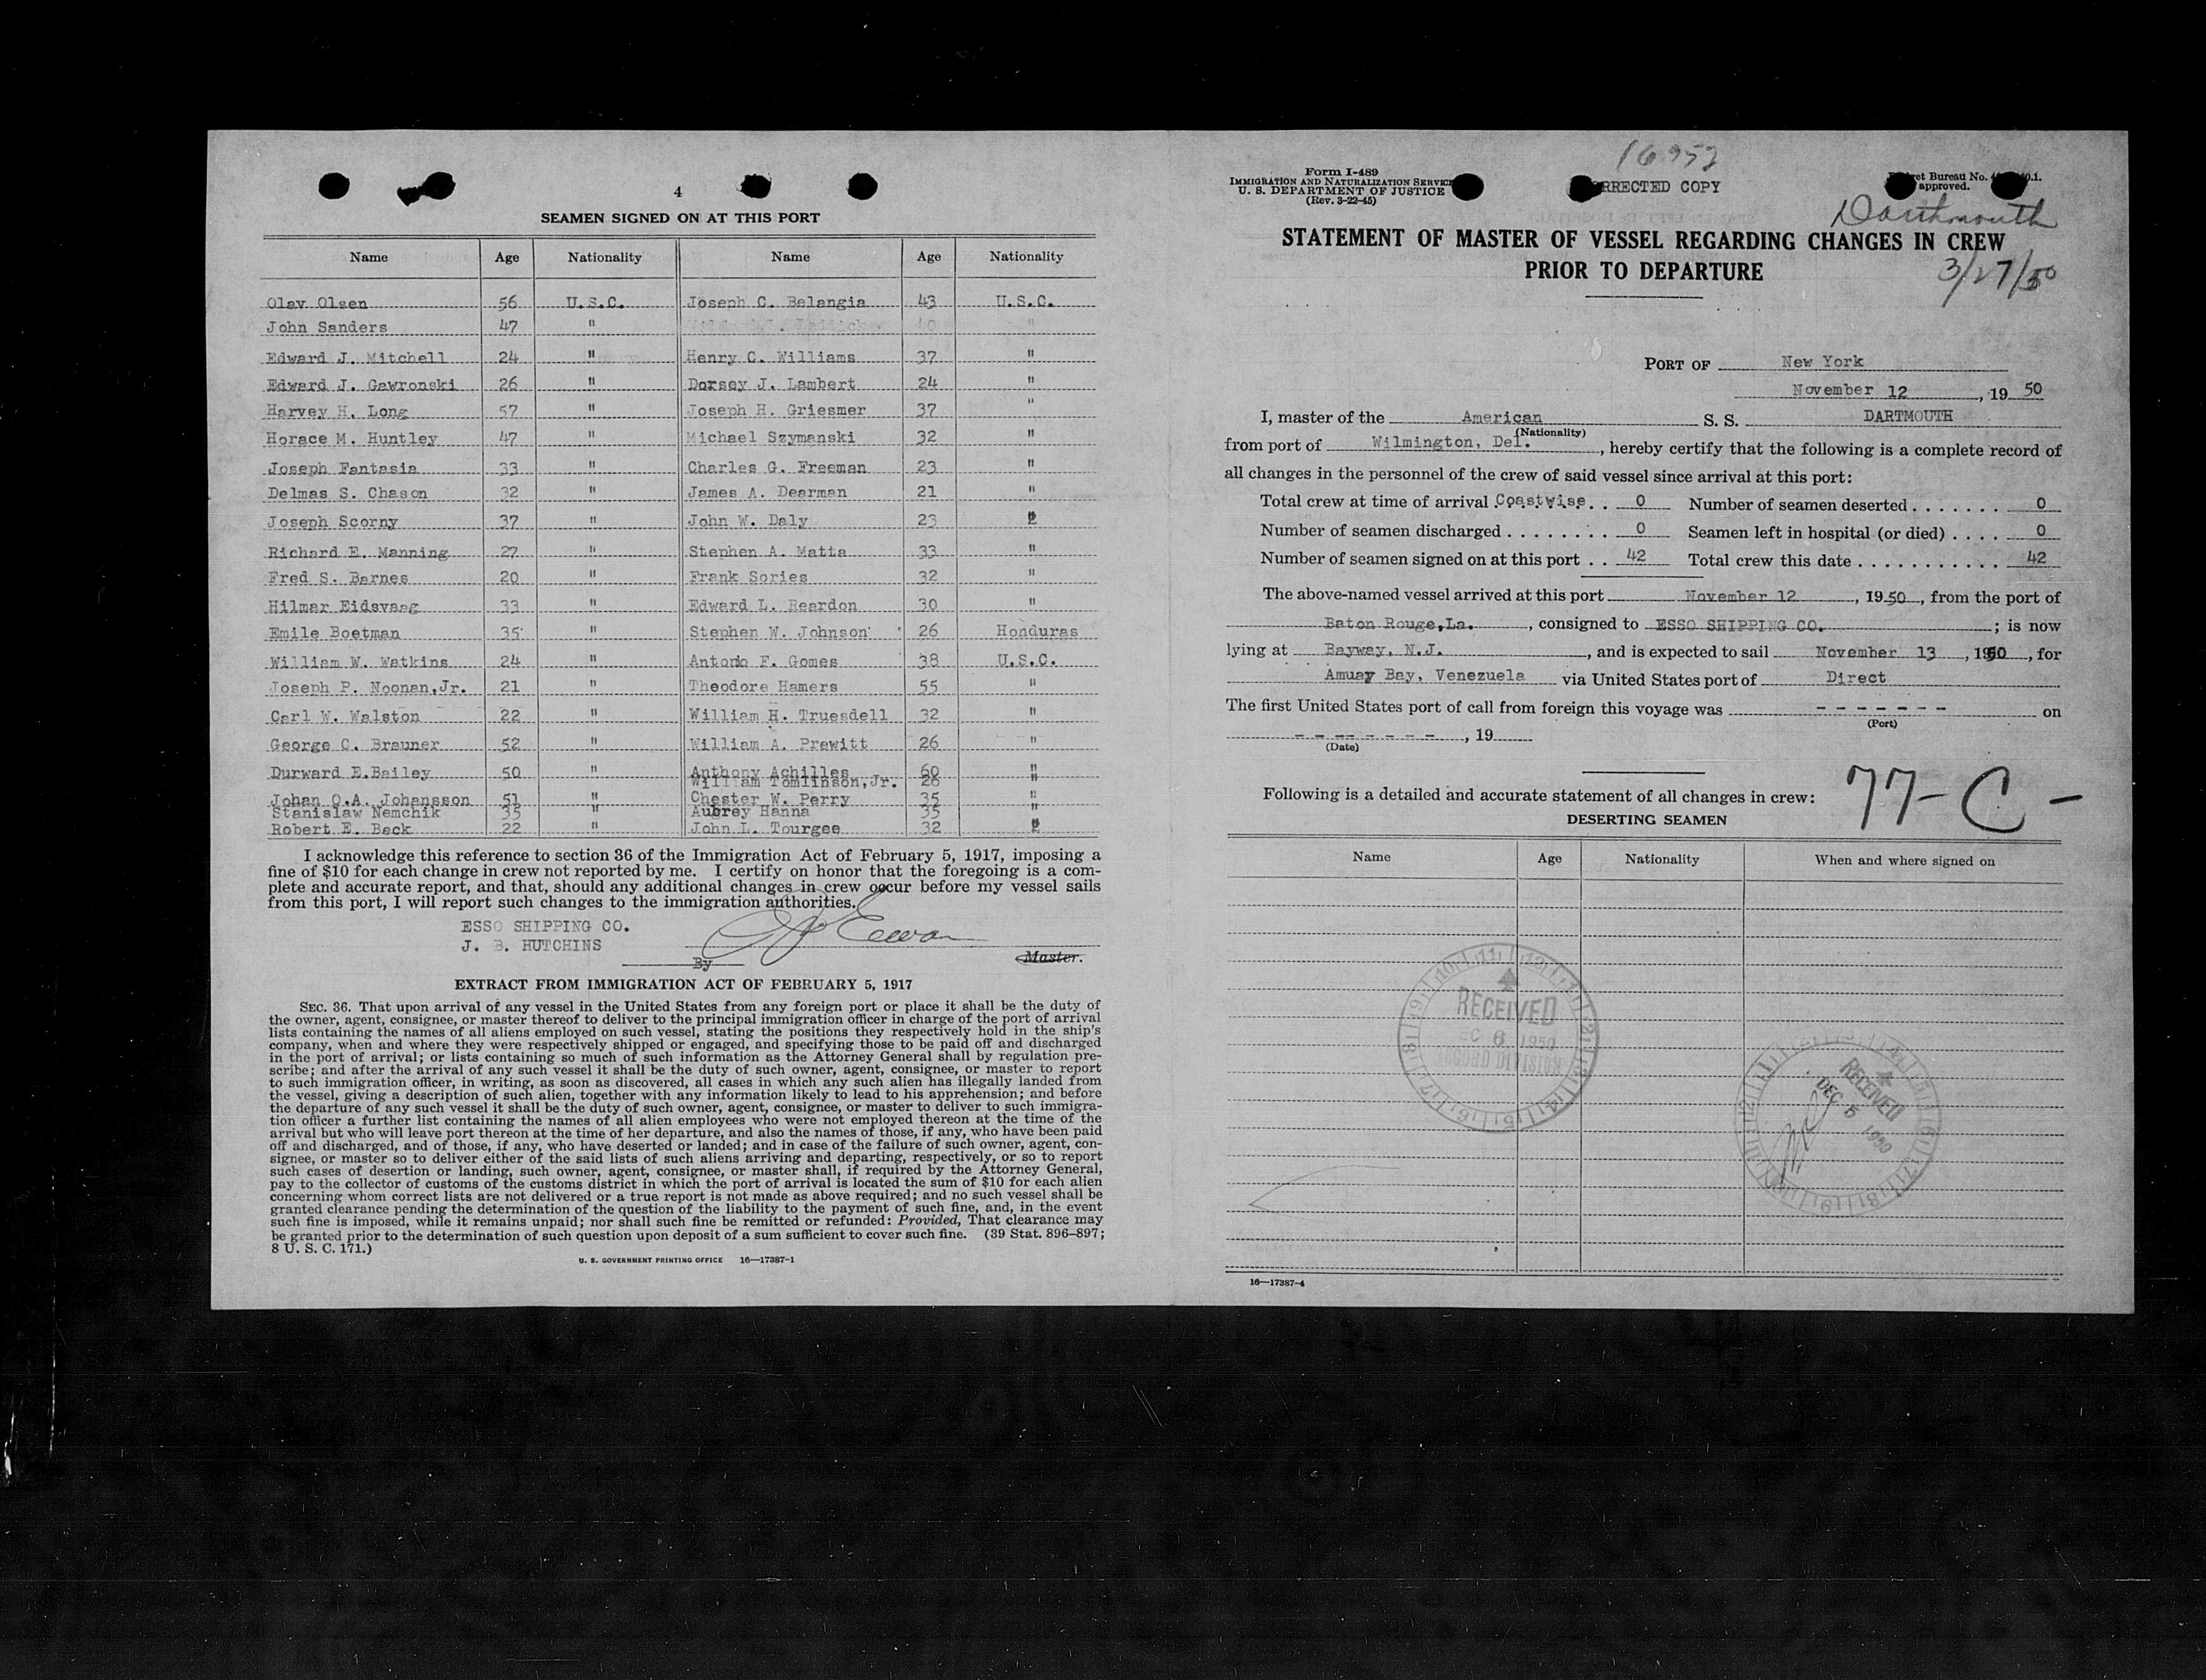 4
SEAMEN SIGNED ON AT THIS PORT
Name Age Nationality Name Age Nationality
Olav Olsen 56 U.S.C. Joseph C. Belangia 43 U.S.C.
John Sanders 47 "
Edward J. Mitchell 24 " Henry C. Williams 37 "
Edward J. Gawronski 26 " Dorsey J. Lambert 24 "
Harvey H. Long 57 " Joseph H. Griesmer 37 "
Horace M. Huntley 47 " Michael Szymanski 32 "
Joseph Fantasia 33 " Charles G. Freeman 23 "
Delmas S. Chason 32 " James A. Dearman 21 "
Joseph Scorny 37 " John W. Daly 23
Richard E. Manning 27 " Stephen A. Matta 33 "
Fred S. Barnes 20 " Frank Sories 32 "
Hilmar Eidsvaag 33 " Edward L. Reardon 30 "
Emile Boetman 35 " Stephen W. Johnson 26 Honduras
William W. Watkins 24 " Antonio F. Gomes 38 U.S.C.
Joseph P. Noonan,Jr. 21 " Theodore Hamers 55 "
Carl W. Walston 22 " William H. Truesdell 32 "
George C. Brauner 52 " William A. Prewitt 26 "
Durward E.Bailey 50 " Anthony Achilles 60 "
William Tomlinson,Jr. 26 "
Johan O.A. Johansson 51 " Chester W. Perry 35 "
Stanislaw Nemchik 35 " Aubrey Hanna 35 "
Robert E. Beck 22 " John L. Tourgee 32
I acknowledge this reference to section 36 of the Immigration Act of February 5, 1917, imposing a
fine of $10 for each change in crew not reported by me. I certify on honor that the foregoing is a com-
plete and accurate report, and that, should any additional changes in crew occur before my vessel sails
from this port, I will report such changes to the immigration authorities.
ESSO SHIPPING CO.
J. B. HUTCHINS
By Master.
EXTRACT FROM IMMIGRATION ACT OF FEBRUARY 5, 1917
SEC. 36. That upon arrival of any vessel in the United States from any foreign port or place it shall be the duty of
the owner, agent, consignee, or master thereof to deliver to the principal immigration officer in charge of the port of arrival
lists containing the names of all aliens employed on such vessel, stating the positions they respectively hold in the ship's
company, when and where they were respectively shipped or engaged, and specifying those to be paid off and discharged
in the port of arrival; or lists containing so much of such information as the Attorney General shall by regulation pre-
scribe; and after the arrival of any such vessel it shall be the duty of such owner, agent, consignee, or master to report
to such immigration officer, in writing, as soon as discovered, all cases in which any such alien has illegally landed from
the vessel, giving a description of such alien, together with any information likely to lead to his apprehension; and before
the departure of any such vessel it shall be the duty of such owner, agent, consignee, or master to deliver to such immigra-
tion officer a further list containing the names of all alien employees who were not employed thereon at the time of the
arrival but who will leave port thereon at the time of her departure, and also the names of those, if any, who have been paid
off and discharged, and of those, if any, who have deserted or landed; and in case of the failure of such owner, agent, con-
signee, or master so to deliver either of the said lists of such aliens arriving and departing, respectively, or so to report
such cases of desertion or landing, such owner, agent, consignee, or master shall, if required by the Attorney General,
pay to the collector of customs of the customs district in which the port of arrival is located the sum of $10 for each alien
concerning whom correct lists are not delivered or a true report is not made as above required; and no such vessel shall be
granted clearance pending the determination of the question of the liability to the payment of such fine, and, in the event
such fine is imposed, while it remains unpaid; nor shall such fine be remitted or refunded: Provided, That clearance may
be granted prior to the determination of such question upon deposit of a sum sufficient to cover such fine. (39 Stat. 896–897;
8 U. S. C. 171.)
U. S. GOVERNMENT PRINTING OFFICE 16—17387-1
16952
Form I-489
IMMIGRATION AND NATURALIZATION SERVICE
U. S. DEPARTMENT OF JUSTICE
(Rev. 3-22-45)
RRECTED COPY
et Bureau No.
approved.
Dartmouth
STATEMENT OF MASTER OF VESSEL REGARDING CHANGES IN CREW
PRIOR TO DEPARTURE
3/27/50
PORT OF New York
November 12, 19 50
I, master of the American S. S. DARTMOUTH
(Nationality)
from port of Wilmington, Del., hereby certify that the following is a complete record of
all changes in the personnel of the crew of said vessel since arrival at this port:
Total crew at time of arrival Coastwise . . 0 Number of seamen deserted . . . . . . . 0
Number of seamen discharged . . . . . . . . 0 Seamen left in hospital (or died) . . . . 0
Number of seamen signed on at this port . . 42 Total crew this date . . . . . . . . . . . 42
The above-named vessel arrived at this port November 12, 1950, from the port of
Baton Rouge,La., consigned to ESSO SHIPPING CO.; is now
lying at Bayway, N.J., and is expected to sail November 13, 1950, for
Amuay Bay, Venezuela via United States port of Direct
The first United States port of call from foreign this voyage was - - - - - - - on
(Port)
- - - - - - - -, 19
(Date)
77-C-
Following is a detailed and accurate statement of all changes in crew:
DESERTING SEAMEN
Name Age Nationality When and where signed on
RECEIVED
EC 6 1950
RECORD DIVISION
RECEIVED
DEC 5 1950
16—17387-4